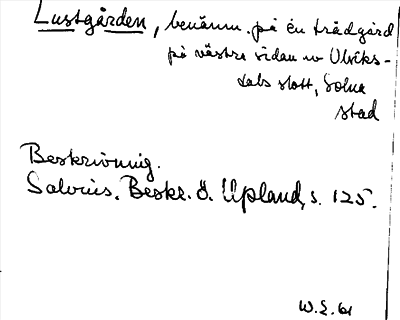 Lustgården, benämn. på en trädgård
på västra sidan av Ulriks-
dals slott, Solna
stad
Beskrivning.
Salvius. Beskr. ö. Upland, s. 125.
W.E. 61